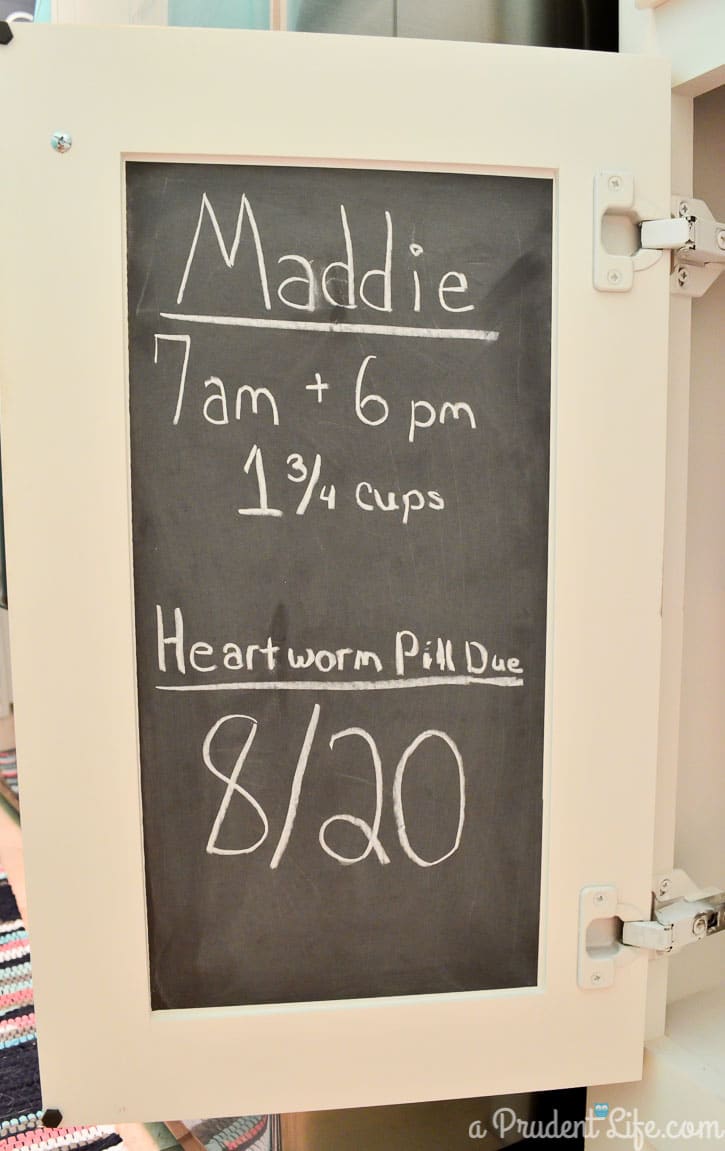 Maddie
7am + 6pm
1 3/4 cups
Heartworm Pill Due
8/20
a Prudent Life.com